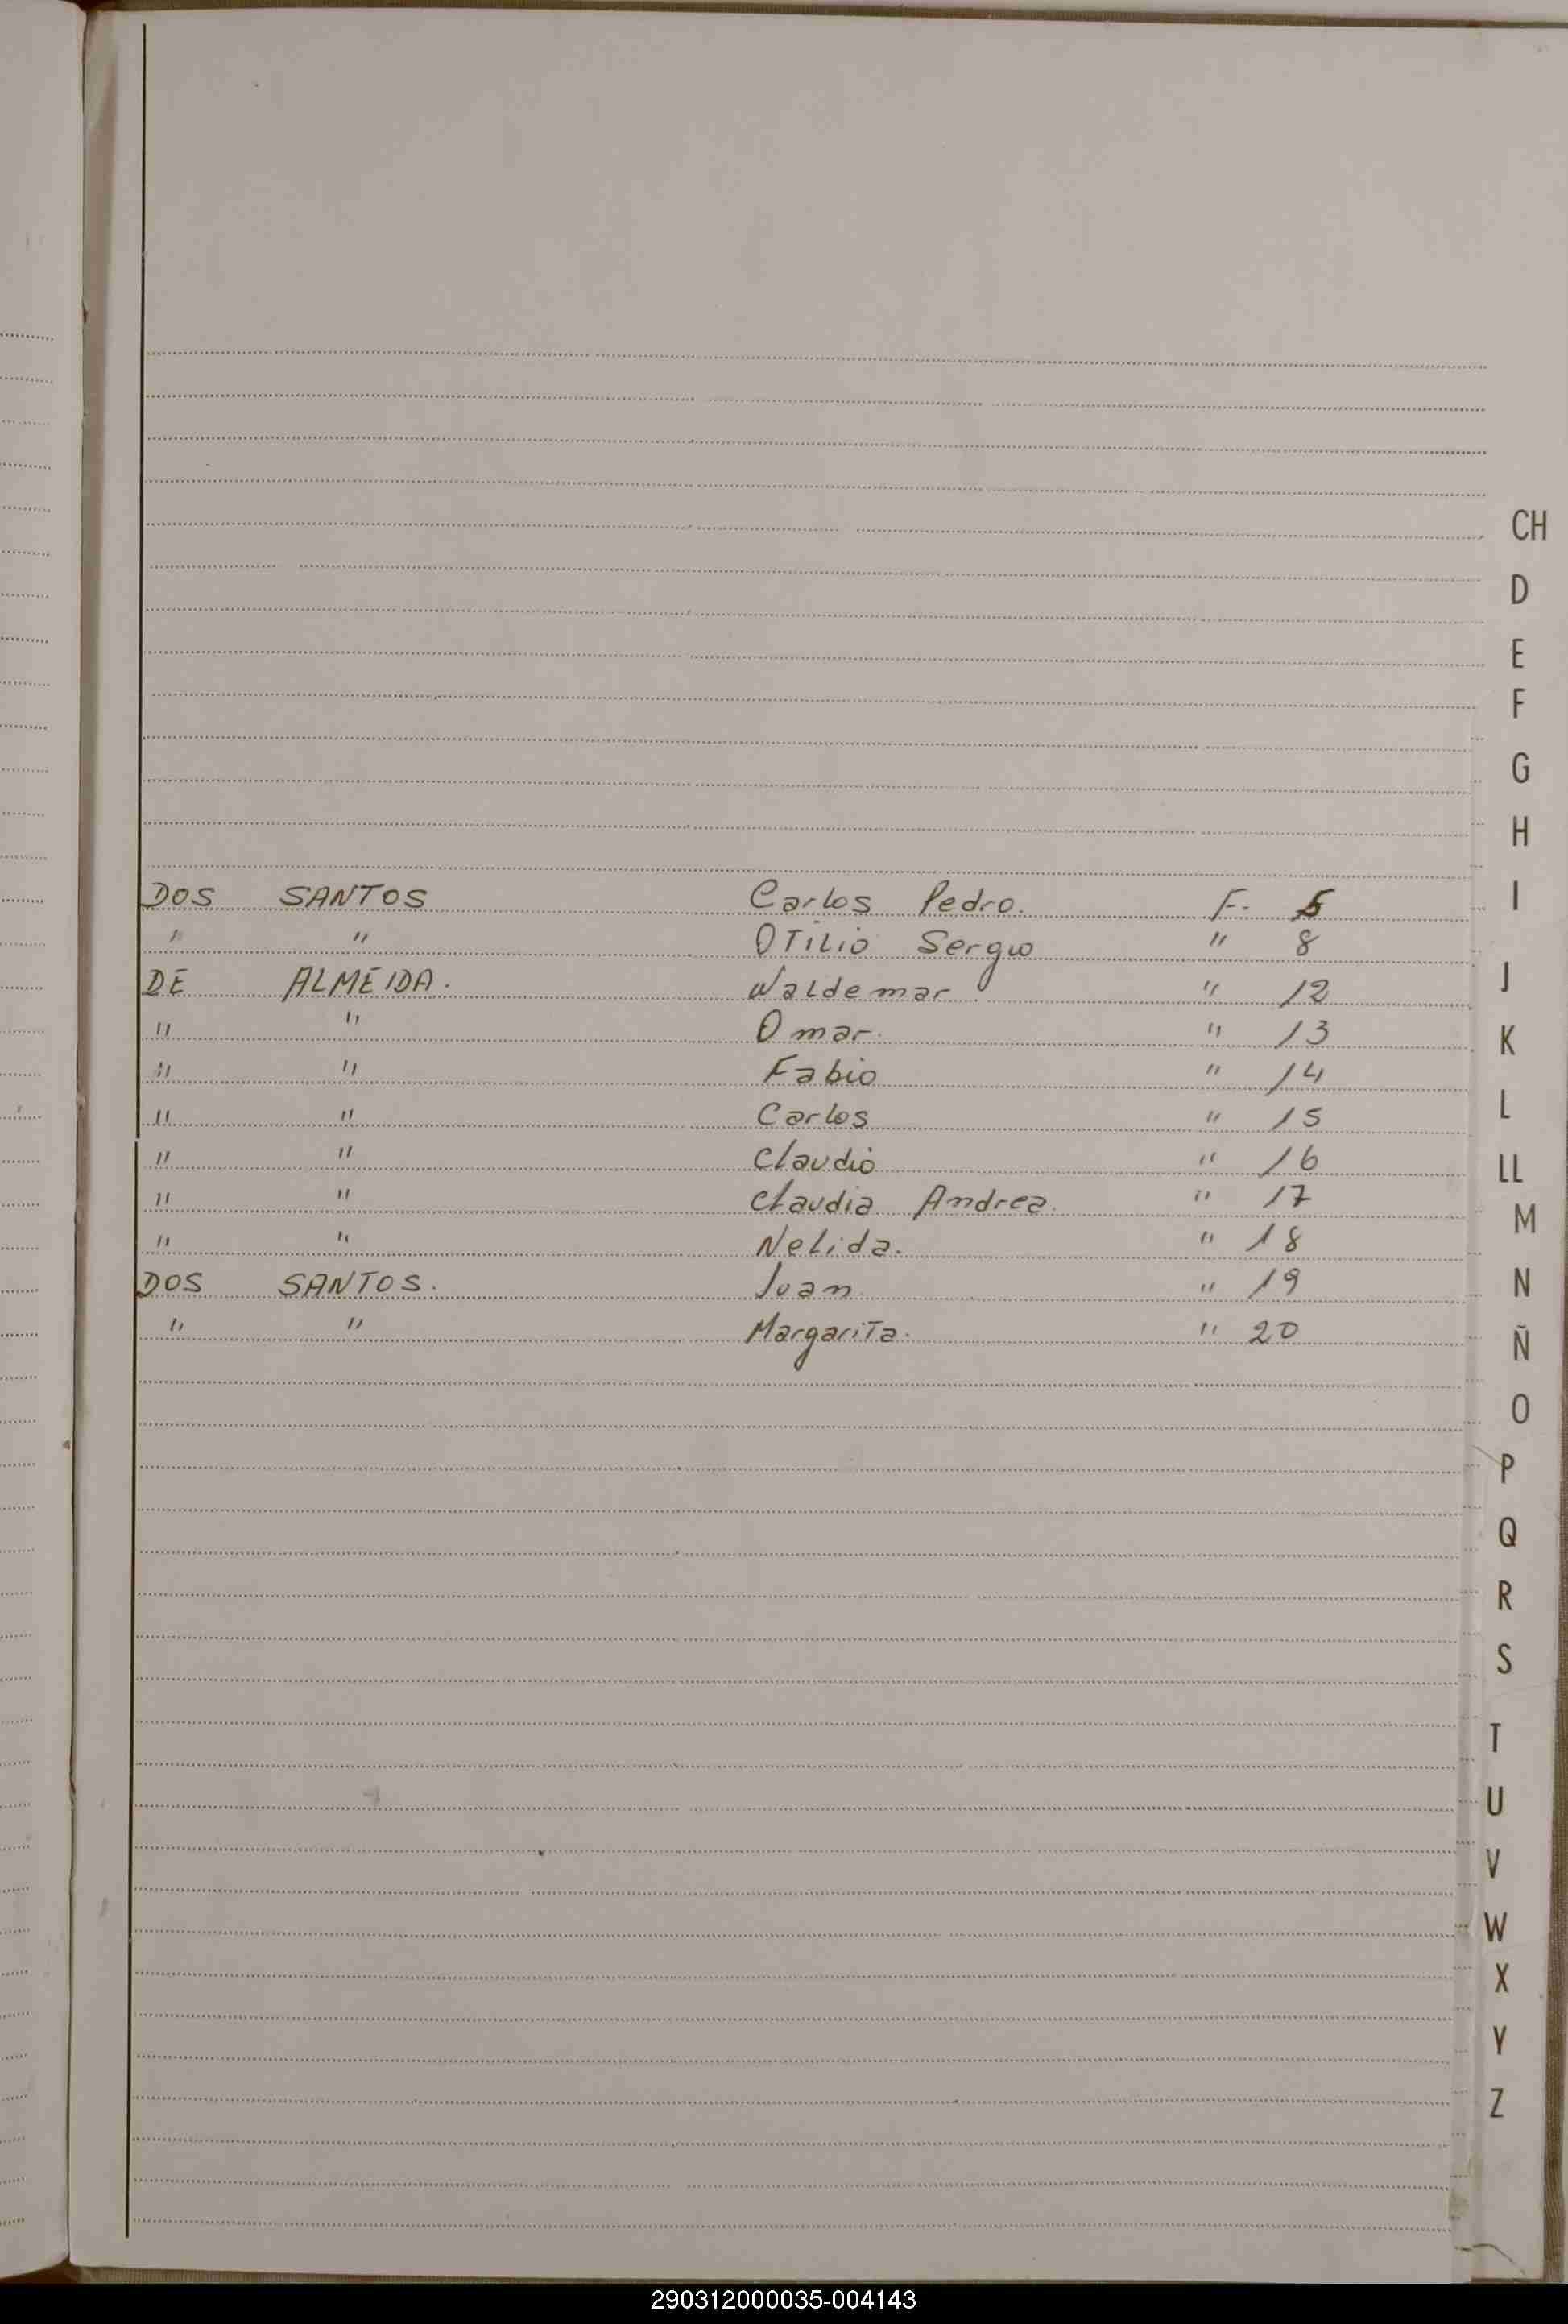 DOS SANTOS Carlos Pedro. F. 5
" " OTILIO Sergio " 8
DE ALMEIDA. Waldemar " 12
" " Omar. " 13
" " Fabio " 14
" " Carlos " 15
" " Claudio " 16
" " Claudia Andrea. " 17
" " Nelida. " 18
DOS SANTOS. Juan. " 19
" " Margarita. " 20
CH
D
E
F
G
H
I
J
K
L
LL
M
N
Ñ
O
P
Q
R
S
T
U
V
W
X
Y
Z
290312000035-004143